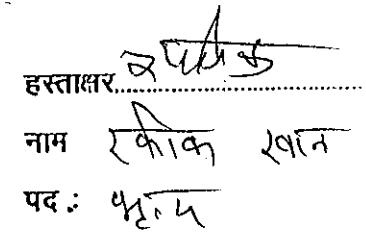 हस्ताक्षर रफीक
नाम रफीक खान
पद : भृत्य